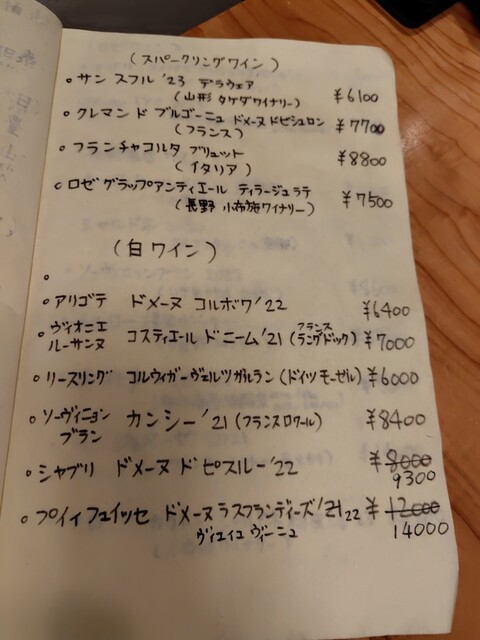 (スパークリングワイン)
○ サン スフル '23 デラウェア
(山形 タケダワイナリー) ¥6100
○ クレマン ド ブルゴーニュ ドメーヌ ドビシュロン
(フランス) ¥7700
○ フランチャコルタ ブリュット
(イタリア) ¥8800
○ ロゼ グラップアンティエール ティラージュラテ
(長野 小布施ワイナリー) ¥7500
(白ワイン)
○
○ アリゴテ ドメーヌ コルボワ '22 ¥6400
○ ヴィオニエ
ルーサンヌ コスティエール ドニーム '21 (フランス ラングドック) ¥7000
○ リースリング コルヴィガーヴェルツガルラン (ドイツモーゼル) ¥6000
○ ソーヴィニョン
ブラン カンシー '21 (フランスロワール) ¥8400
○ シャブリ ドメーヌ ド ピスルー '22 ¥8000
9300
○ プイィ フュイッセ ドメーヌ ラスフランディーズ '21 22 ¥12000
ヴィエイユ ヴィーニュ 14000